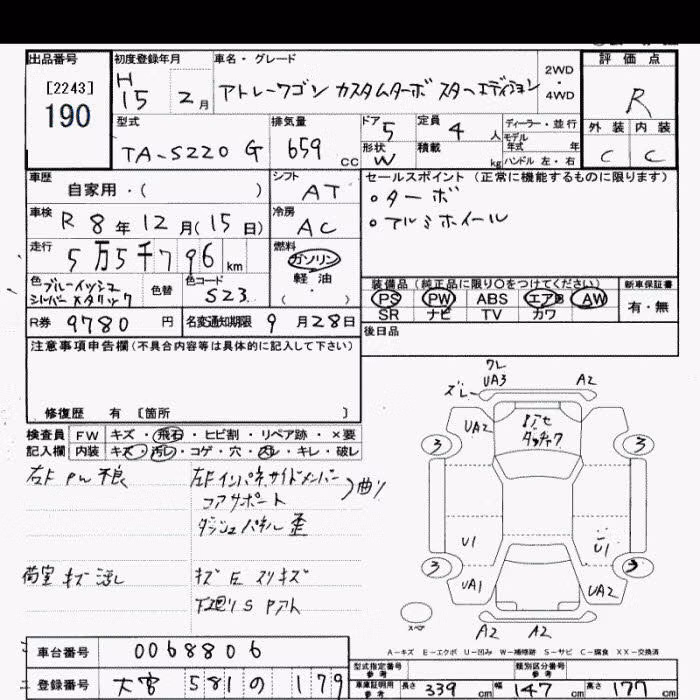 出品番号 初度登録年月 車名・グレード 評価点
[2243] H 15 2月 アトレーワゴン カスタムターボ スターエディション 2WD・4WD R
190
型式 排気量 ドア 5 定員 4人 ディーラー・並行 外装 内装
TA-S220G 659cc 形状 W 積載 kg モデル年式 年 ハンドル 左・右 C C
車歴 自家用・( ) シフト AT セールスポイント (正常に機能するものに限ります)
車検 R8年12月(15日) 冷房 AC 。ターボ
走行 5万5千796km 燃料 ガソリン 。アルミホイール
軽油 ・( )
色 ブルーイッシュ シルバーメタリック 色替 色コード S23 装備品 (純正品に限り○をつけてください) 新車保証書
PS PW ABS エアB AW 有・無
SR ナビ TV カワ
R券 9780円 名変通知期限 9月28日 後日品
注意事項申告欄(不具合内容等は具体的に記入して下さい)
修復歴 有 〔箇所 〕
検査員 FW キズ・飛石・ヒビ割・リペア跡・×要
記入欄 内装 キズ・汚レ・コゲ・穴・凹・キレ・破レ
ズレ ワレ UA3 A2
UA2
3 3
右F PW 不良 左Fインパネサイドメンバー
コアサポート 曲リ
ダッシュパネル 歪
U1 U1
荷室 キズ 凹
3 3
UA1 UA2
下廻リS
スペア
A2 A2
A-キズ E-エクボ U-凹み W-補修跡 S-サビ C-腐食 XX-交換済
車台番号 0068806 型式指定番号 参考 類別区分番号 参考
登録番号 大宮 581 の 179 車庫証明用 参考 長さ 339cm 幅 147cm 高さ 177cm